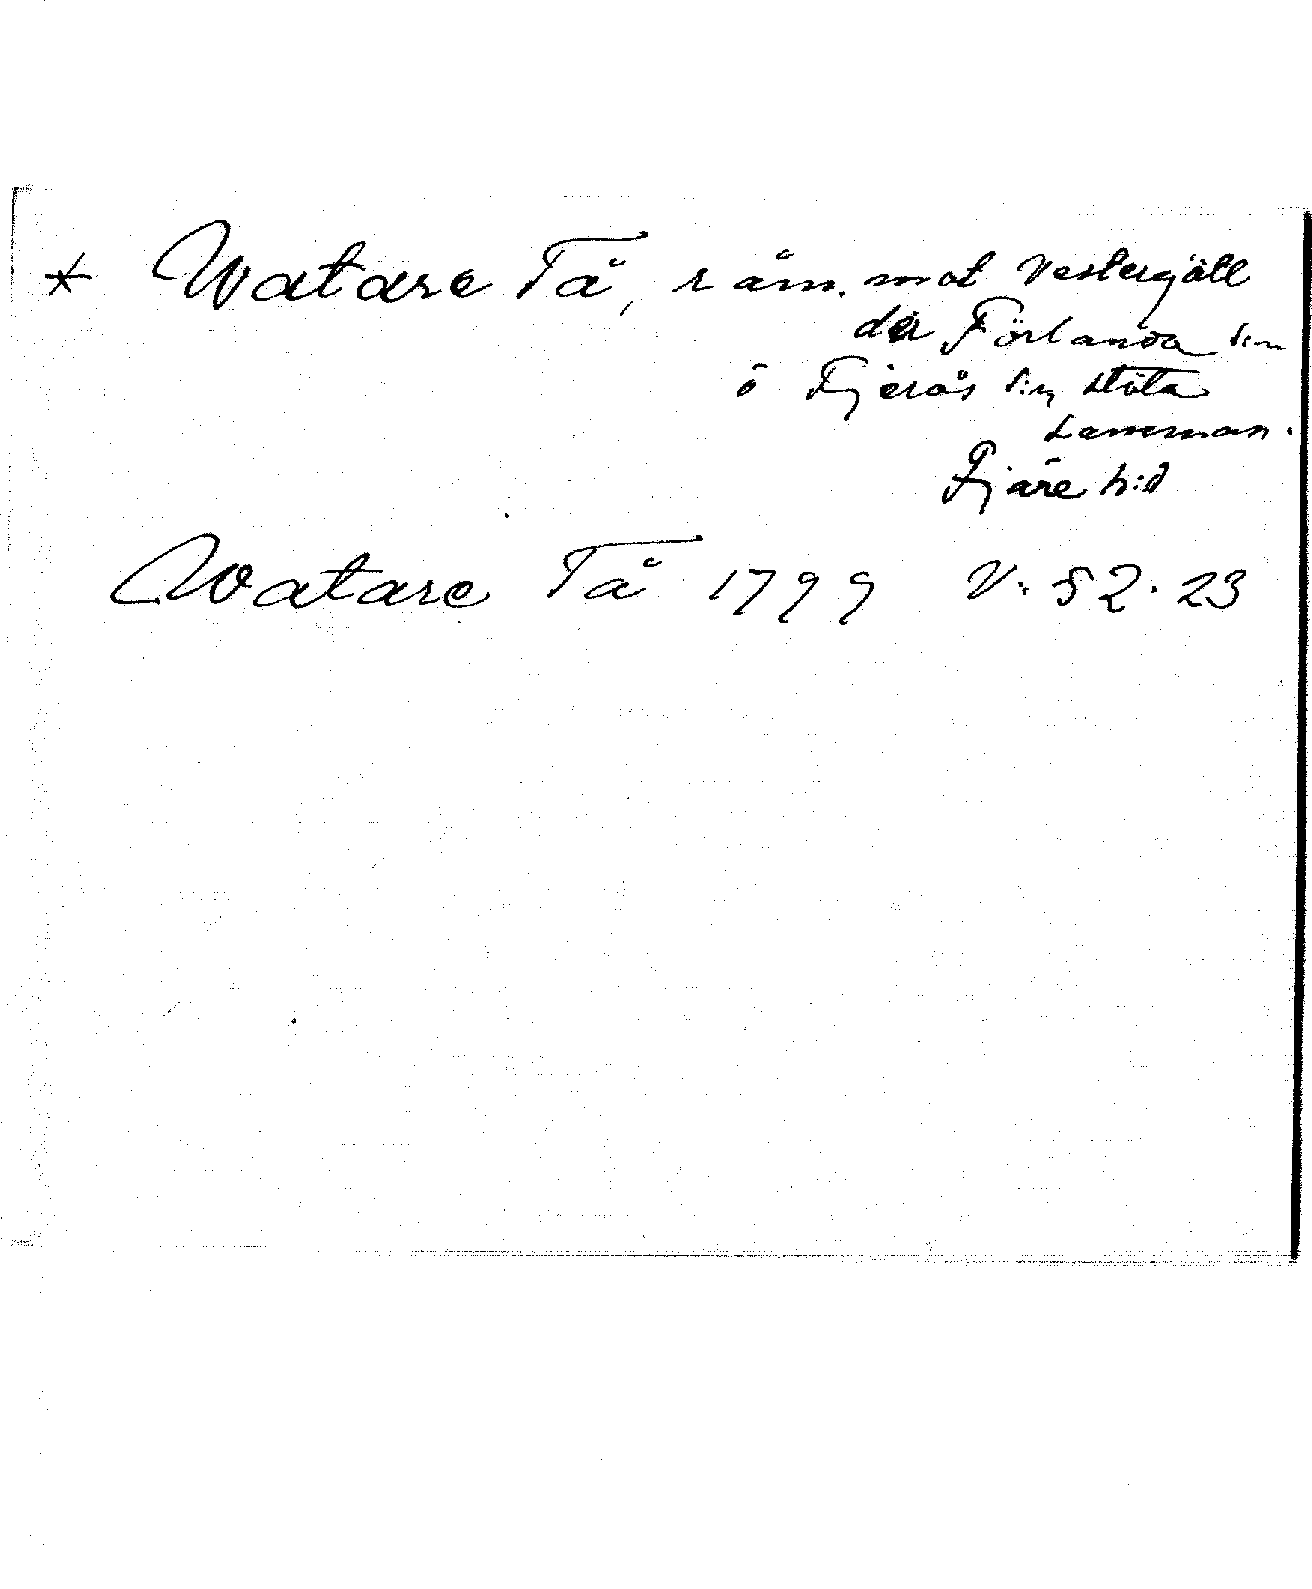 * Watare Tå, råm. mot Vestergötl
der Förlanda s:n
o Fjerås s:n stöta
samman.
Fjäre h:d
Watare Tå 1799 V. 52. 23